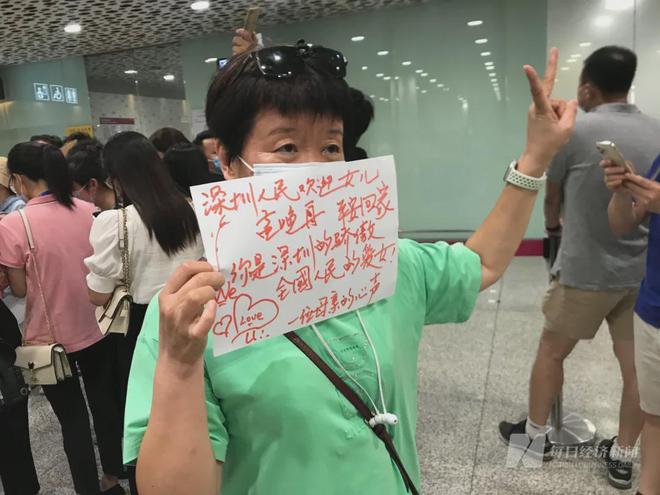 深圳人民欢迎女儿
孟晚舟 平安回家
你是深圳的骄傲
全国人民的爱女!
We
Love
U
一位母亲的心声
每日经济新闻